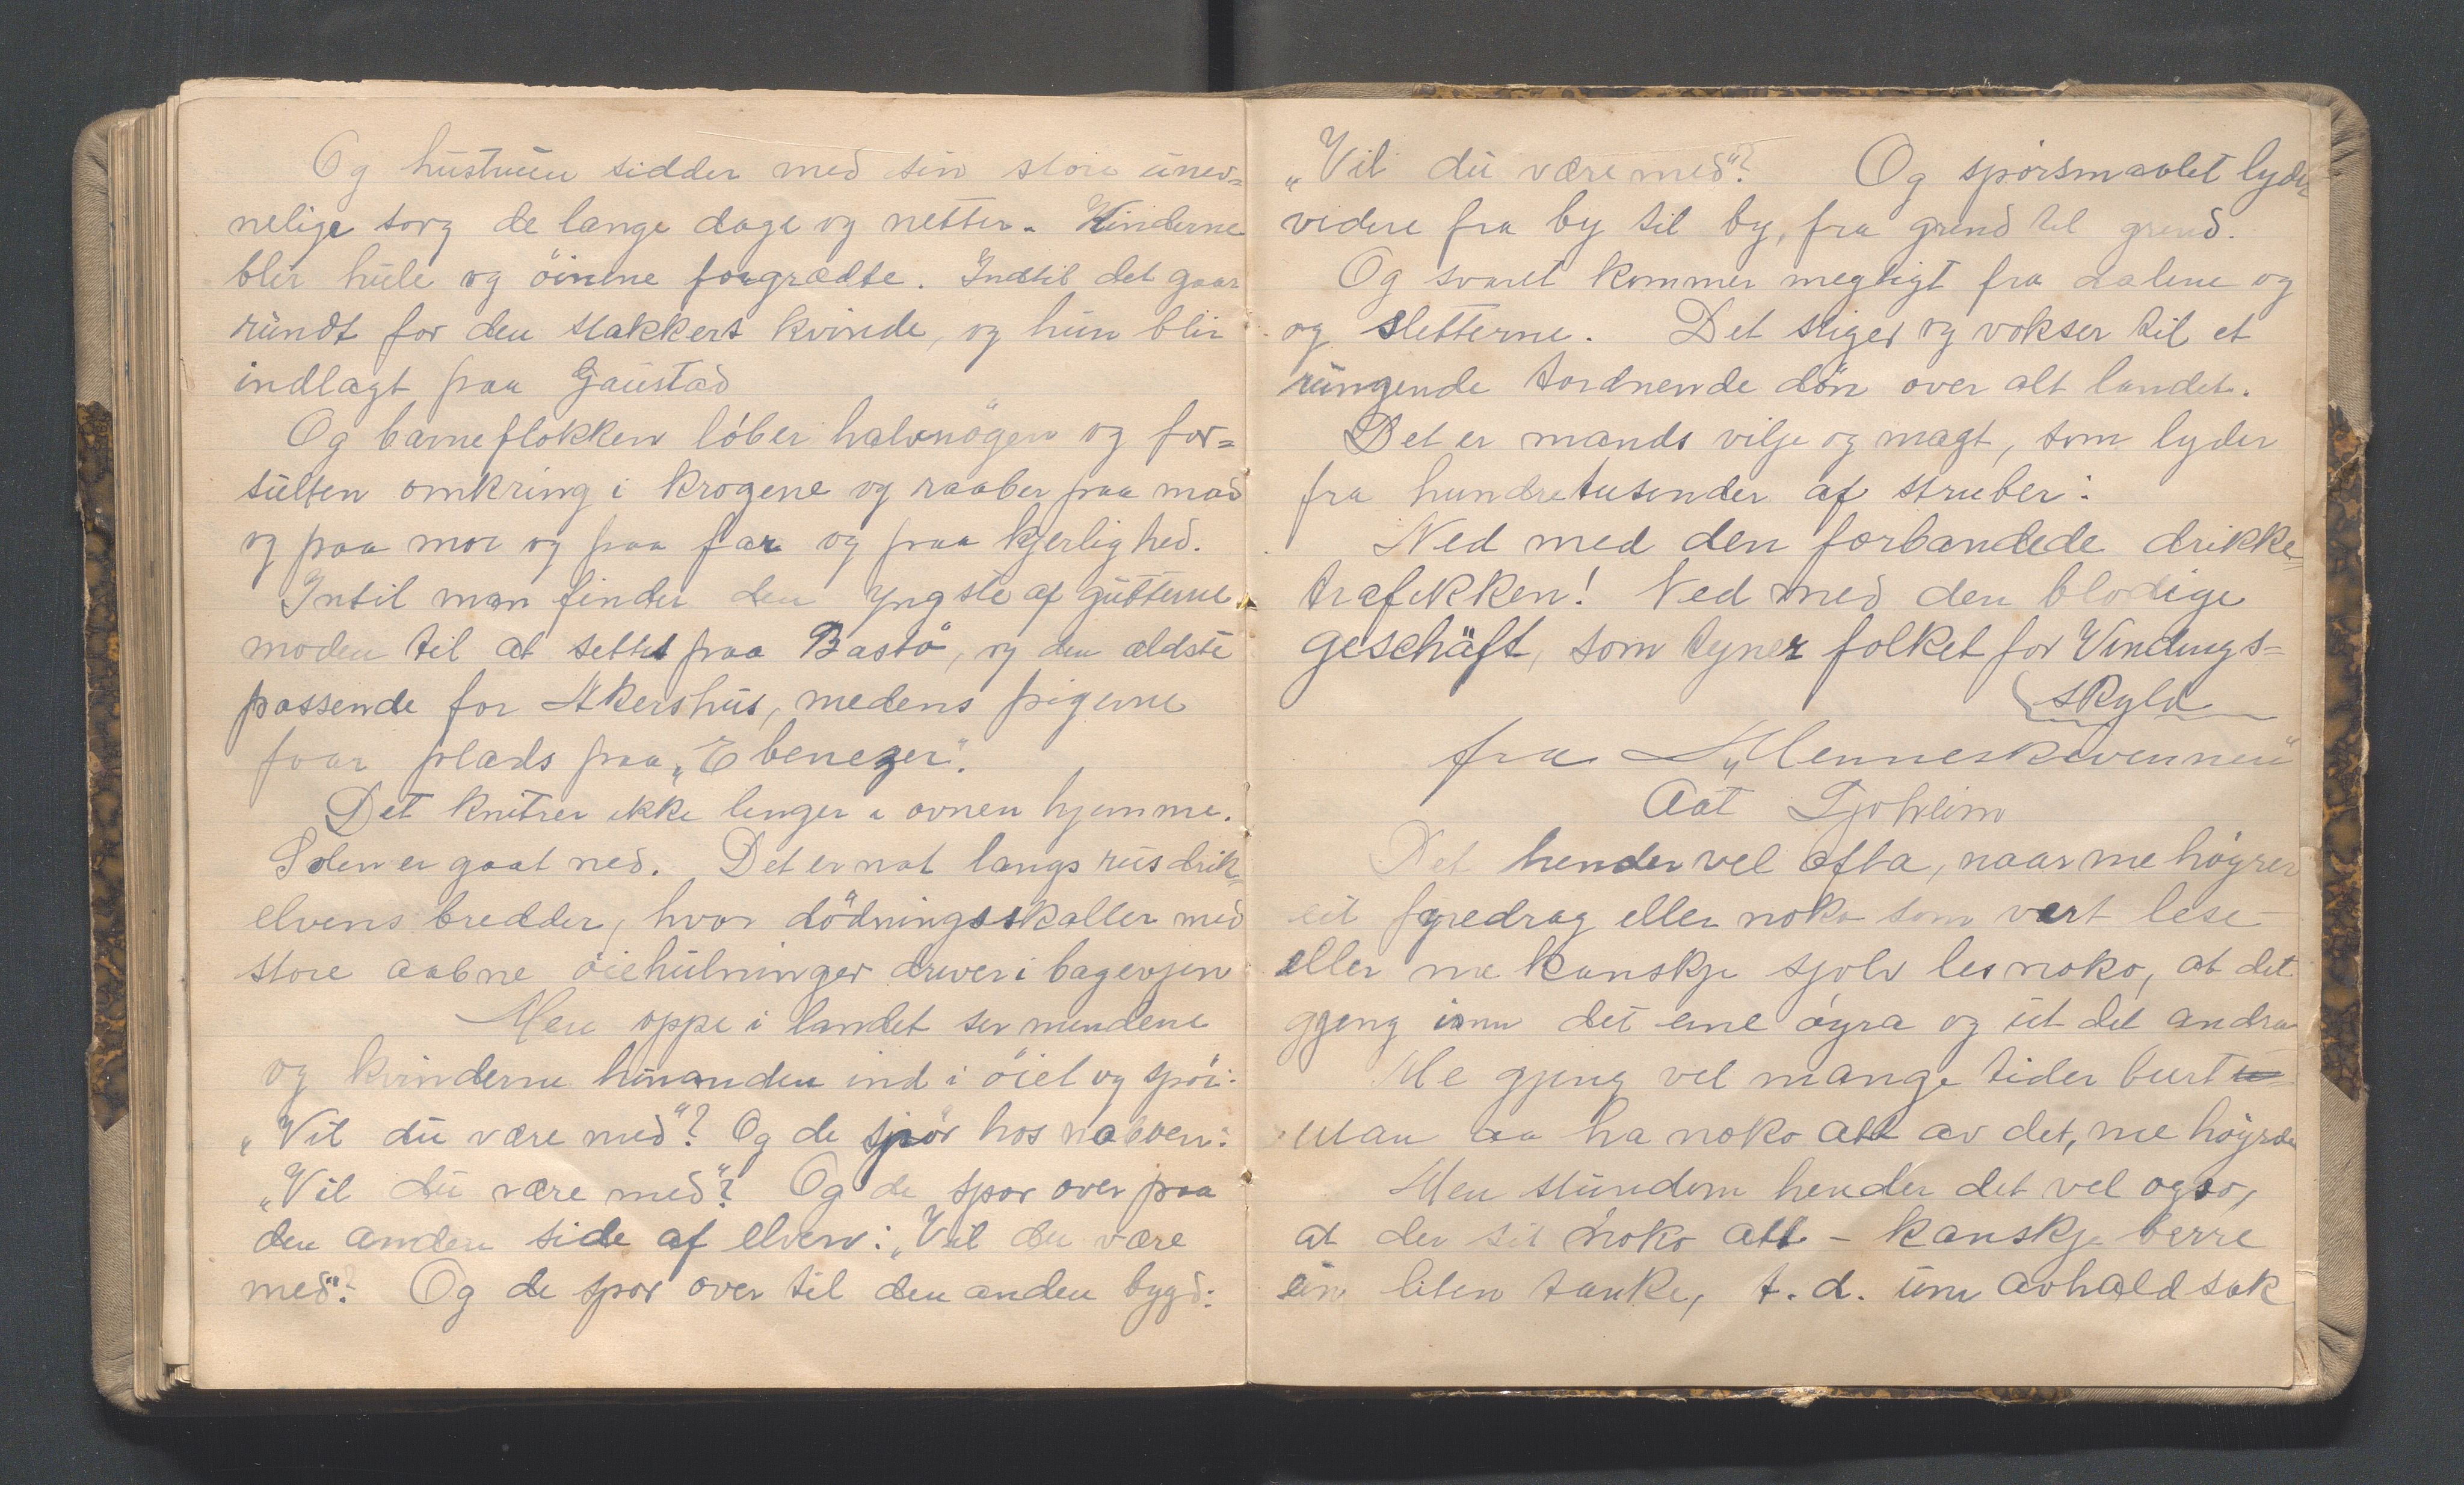 Og hustruen sidder med sin store unev=
nelige sorg de lange dage og netter. Kinderne
blir hule og öinene forgrædte. Indtil det gaar
rundt for den stakkers kvinde, og hun blir
indlagt paa Gaustad
Og barneflokken löber halvnögen og for=
sulten omkring i krogene og raaber paa mad
og paa mor og paa far og paa kjerlighed.
Intil man finder den yngste af gutterne
moden til at settes paa Bastö, og den ældste
passende for Akershus, medens pigerne
faar plads paa „Ebenezer".
Det knitrer ikke lenger i ovnen hjemme.
Solen er gaat ned. Det er nat langs rusdrik=
elvens bredder, hvor dödningsskaller med
store aabne öiehulninger driver i bagevjen
Men oppe i landet ser mendene
og kvinderne hinanden ind i öiet og spör:
„Vil du være med"? Og de spör hos naboen:
„Vil du være med"? Og de spör over paa
den anden side af elven: „Vil du være
med"? Og de spör over til den anden bygd:
„Vil du være med"? Og spörsmaalet lyder
videre fra by til by, fra grend til grend.
Og svaret kommer megtigt fra dalene og
og sletterne. Det stiger og vokser til et
rungende tordnende dön over alt landet.
Det er mands vilje og magt, som lyder
fra hundretusender af struber:
Ned med den forbandede drikke=
trafikken! Ned med den blodige
geschäft, som tyner folket for Vindings=
skyld
fra „Menneskevennen"
Aat Tjoheim
Det hender vel ofta, naar me höyrer
eit fyredrag eller noko som vert lese
eller me kanskje sjölv les noko, at det
gjeng inn det eine öyra og ut det andra
Me gjeng vel mange tider burt
utan aa ha noko att av det, me höyrde
Men stundom hender det vel ogso,
at der sit noko att - kanskje berre
ein liten tanke, t.d. um avhaldsak